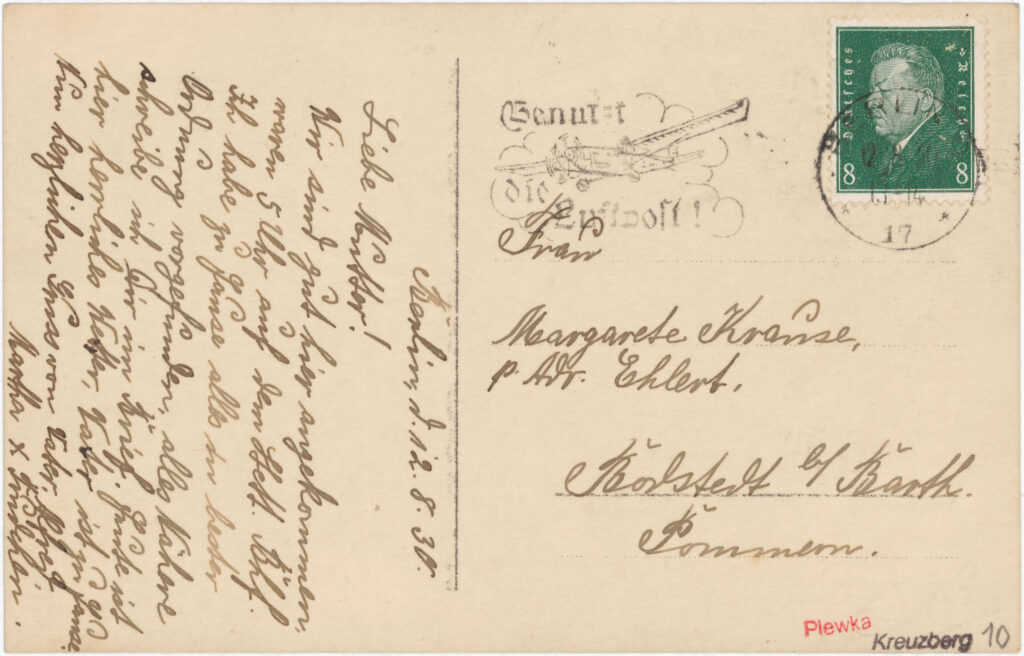 Berlin, d. 12. 8. 30.
Liebe Mutter!
Wir sind gut hier angekommen,
waren 5 Uhr auf dem Stett. Bhf.
Ich habe zu Hause alles in bester
Ordnung vorgefunden, alles Nähere
schreibe ich Dir im Brief. Heute ist
hier herrliches Wetter, Vater ist zu Hause.
Nun herzlichen Gruss von Vater,
Martha
Benutzt
die
Luftpost!
Deutsches Reich
8 8
BERLIN
13-14
* 17 *
Frau
Margarete Krause,
p. Adr. Ehlert.
Bodstedt b/ Barth.
Pommern.
Plewka
Kreuzberg 10